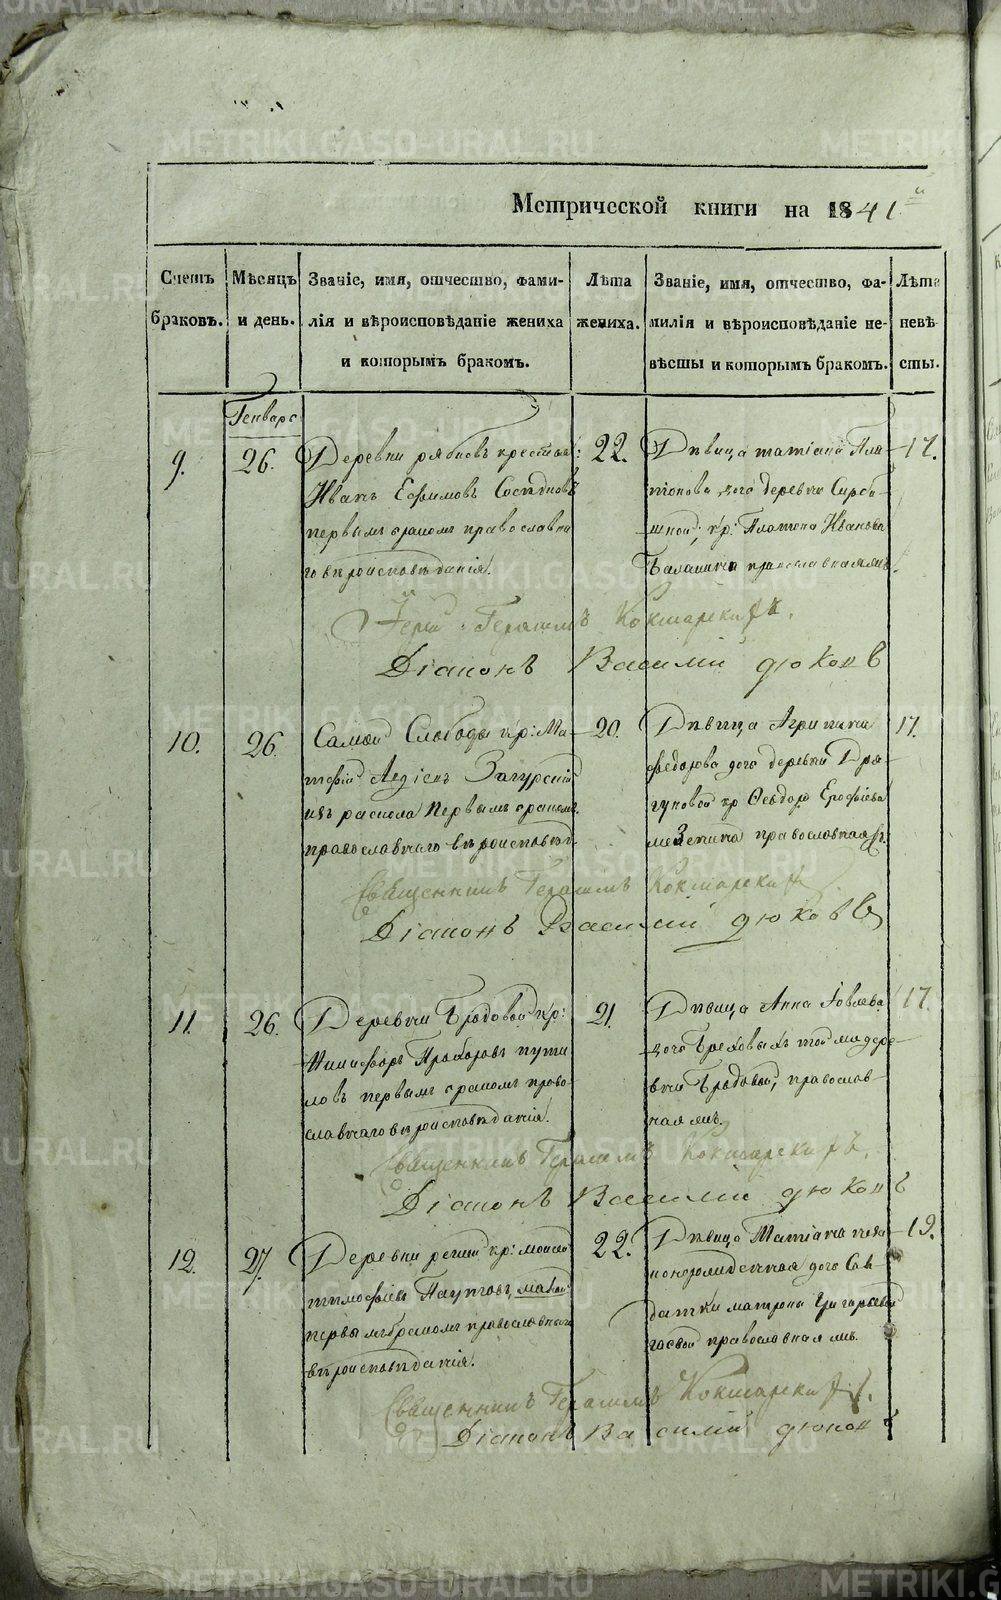 Метрической книги на 1841 й
Счетъ браковъ.
Мѣсяцъ и день.
Званіе, имя, отчество, фами-
лія и вѣроисповѣданіе жениха
и которымъ бракомъ.
Лѣта жениха.
Званіе, имя, отчество, фа-
милія и вѣроисповѣданіе не-
вѣсты и которымъ бракомъ.
Лѣта невѣ-
сты.
Генваря
9.
26.
Деревни
Иванъ Ефимовъ
первымъ бракомъ православна
го вѣроисповѣданія.
22.
Дѣвица татіана Пла
тонова, дочь деревни
кр: Платона Иванова
православная
17.
Герасимъ Кокшарскій
Діаконъ Василій дюковъ
10.
26.
Самой Слободы кр: Ма
тфій Загурскій
изъ раскола Первымъ бракомъ
православнаго вѣроисповѣд.
20.
Дѣвица Агрипина
федорова дочь деревни Дра
гуновой кр Ѳеодора Ерофѣева
православная
17.
Священникъ Герасимъ Кокшарскій
Діаконъ Василій дюковъ
11.
26.
Деревни Брѣдовой кр:
Никифоръ Прохоровъ пути
ловъ первымъ бракомъ право-
славнаго вѣроисповѣданія.
21.
Дѣвица Анна Іовлева
дочь Греховыхъ той же дере-
вни Брѣдовой, православ-
ная
17.
Священникъ Герасимъ Кокшарскій
Діаконъ Василій дюковъ
12.
27.
Деревни кр: моисей
тимофѣевъ Паутовъ,
первымъ бракомъ православнаго
вѣроисповѣданія.
22.
Дѣвица Татіана
дочь Сол-
датки матроны Григорьевой
православная
19.
Священникъ Герасимъ Кокшарскій
Діаконъ Василій дюковъ
METRIKI.GASO-URAL.RU